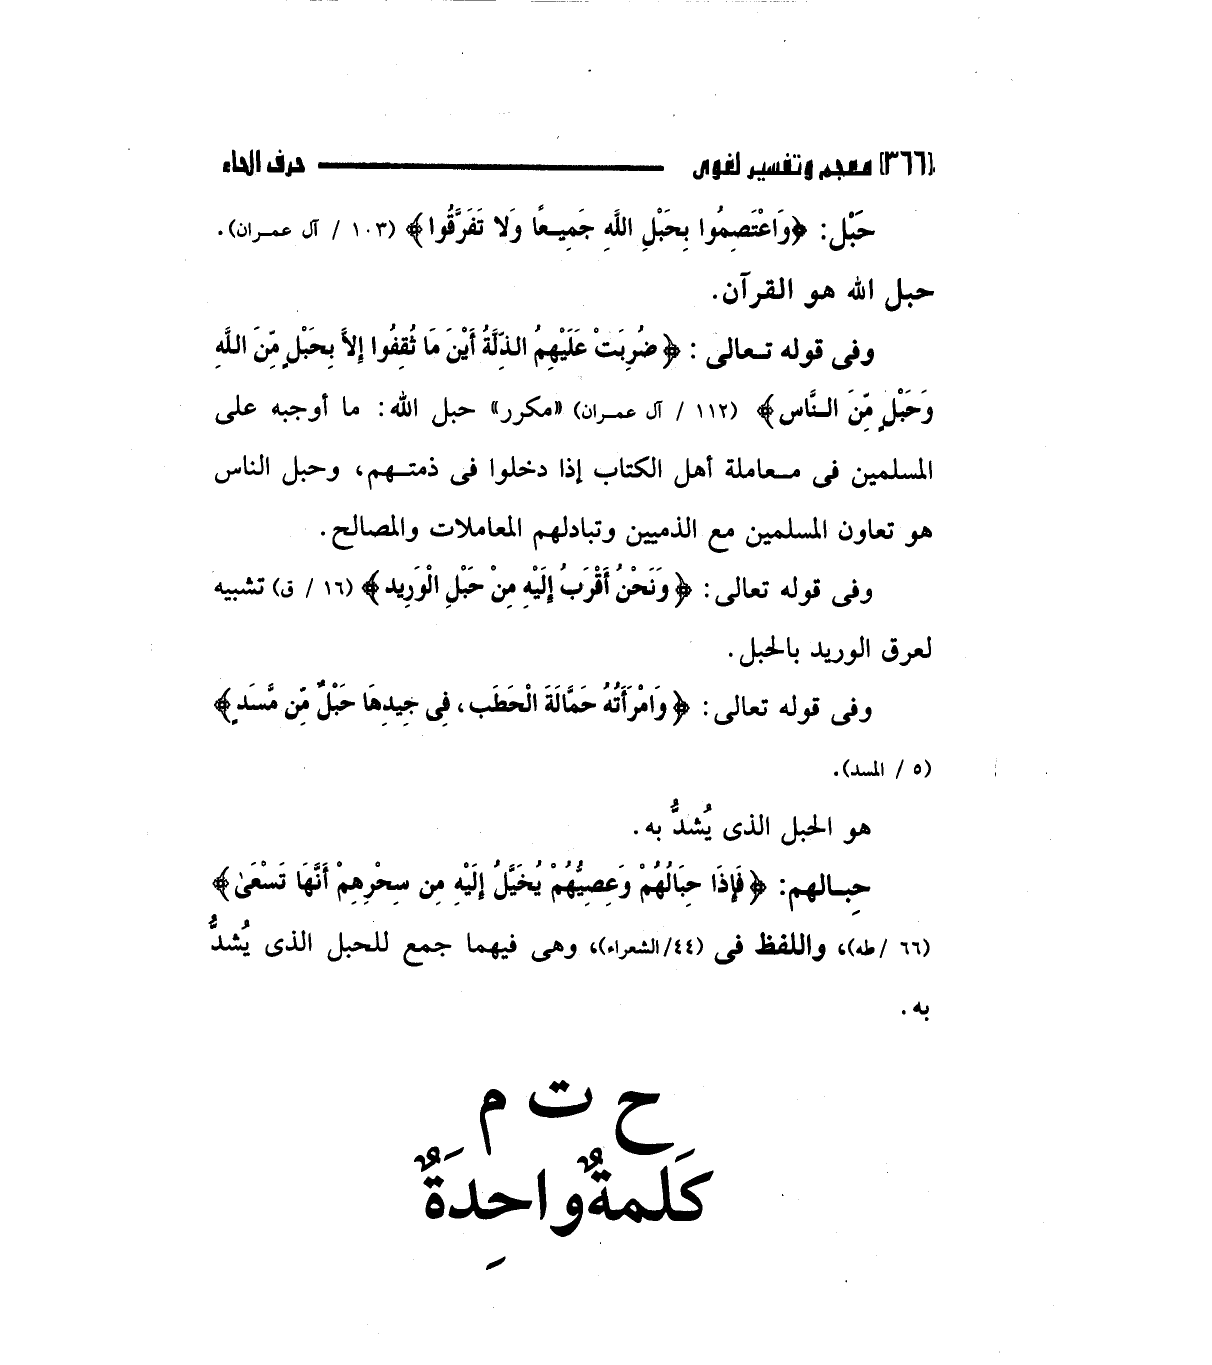 [٣٦٦] معجم وتفسير لغوى حرف الحاء
حَبْل: ﴿وَاعْتَصِمُوا بِحَبْلِ اللَّهِ جَمِيعًا وَلا تَفَرَّقُوا﴾ (١٠٣ / آل عمران).
حبل الله هو القرآن.
وفى قوله تعالى : ﴿ضُرِبَتْ عَلَيْهِمُ الذِّلَّةُ أَيْنَ مَا ثُقِفُوا إِلاَّ بِحَبْلٍ مِّنَ اللَّهِ
وَحَبْلٍ مِّنَ النَّاسِ﴾ (١١٢ / آل عمران) «مكرر» حبل الله: ما أوجبه على
المسلمين فى معاملة أهل الكتاب إذا دخلوا فى ذمتهم، وحبل الناس
هو تعاون المسلمين مع الذميين وتبادلهم المعاملات والمصالح.
وفى قوله تعالى: ﴿وَنَحْنُ أَقْرَبُ إِلَيْهِ مِنْ حَبْلِ الْوَرِيدِ﴾ (١٦ / ق) تشبيه
لعرق الوريد بالحبل.
وفى قوله تعالى: ﴿وَامْرَأَتُهُ حَمَّالَةَ الْحَطَبِ، فِى جِيدِهَا حَبْلٌ مِّن مَّسَدٍ﴾
(٥ / المسد).
هو الحبل الذى يُشدُّ به.
حِبالهم: ﴿فَإِذَا حِبَالُهُمْ وَعِصِيُّهُمْ يُخَيَّلُ إِلَيْهِ مِن سِحْرِهِمْ أَنَّهَا تَسْعَىٰ﴾
(٦٦ /طه)، واللفظ فى (٤٤/الشعراء)، وهى فيهما جمع للحبل الذى يُشدُّ
به.
ح ت م
كَلمةٌ واحِدَةٌ